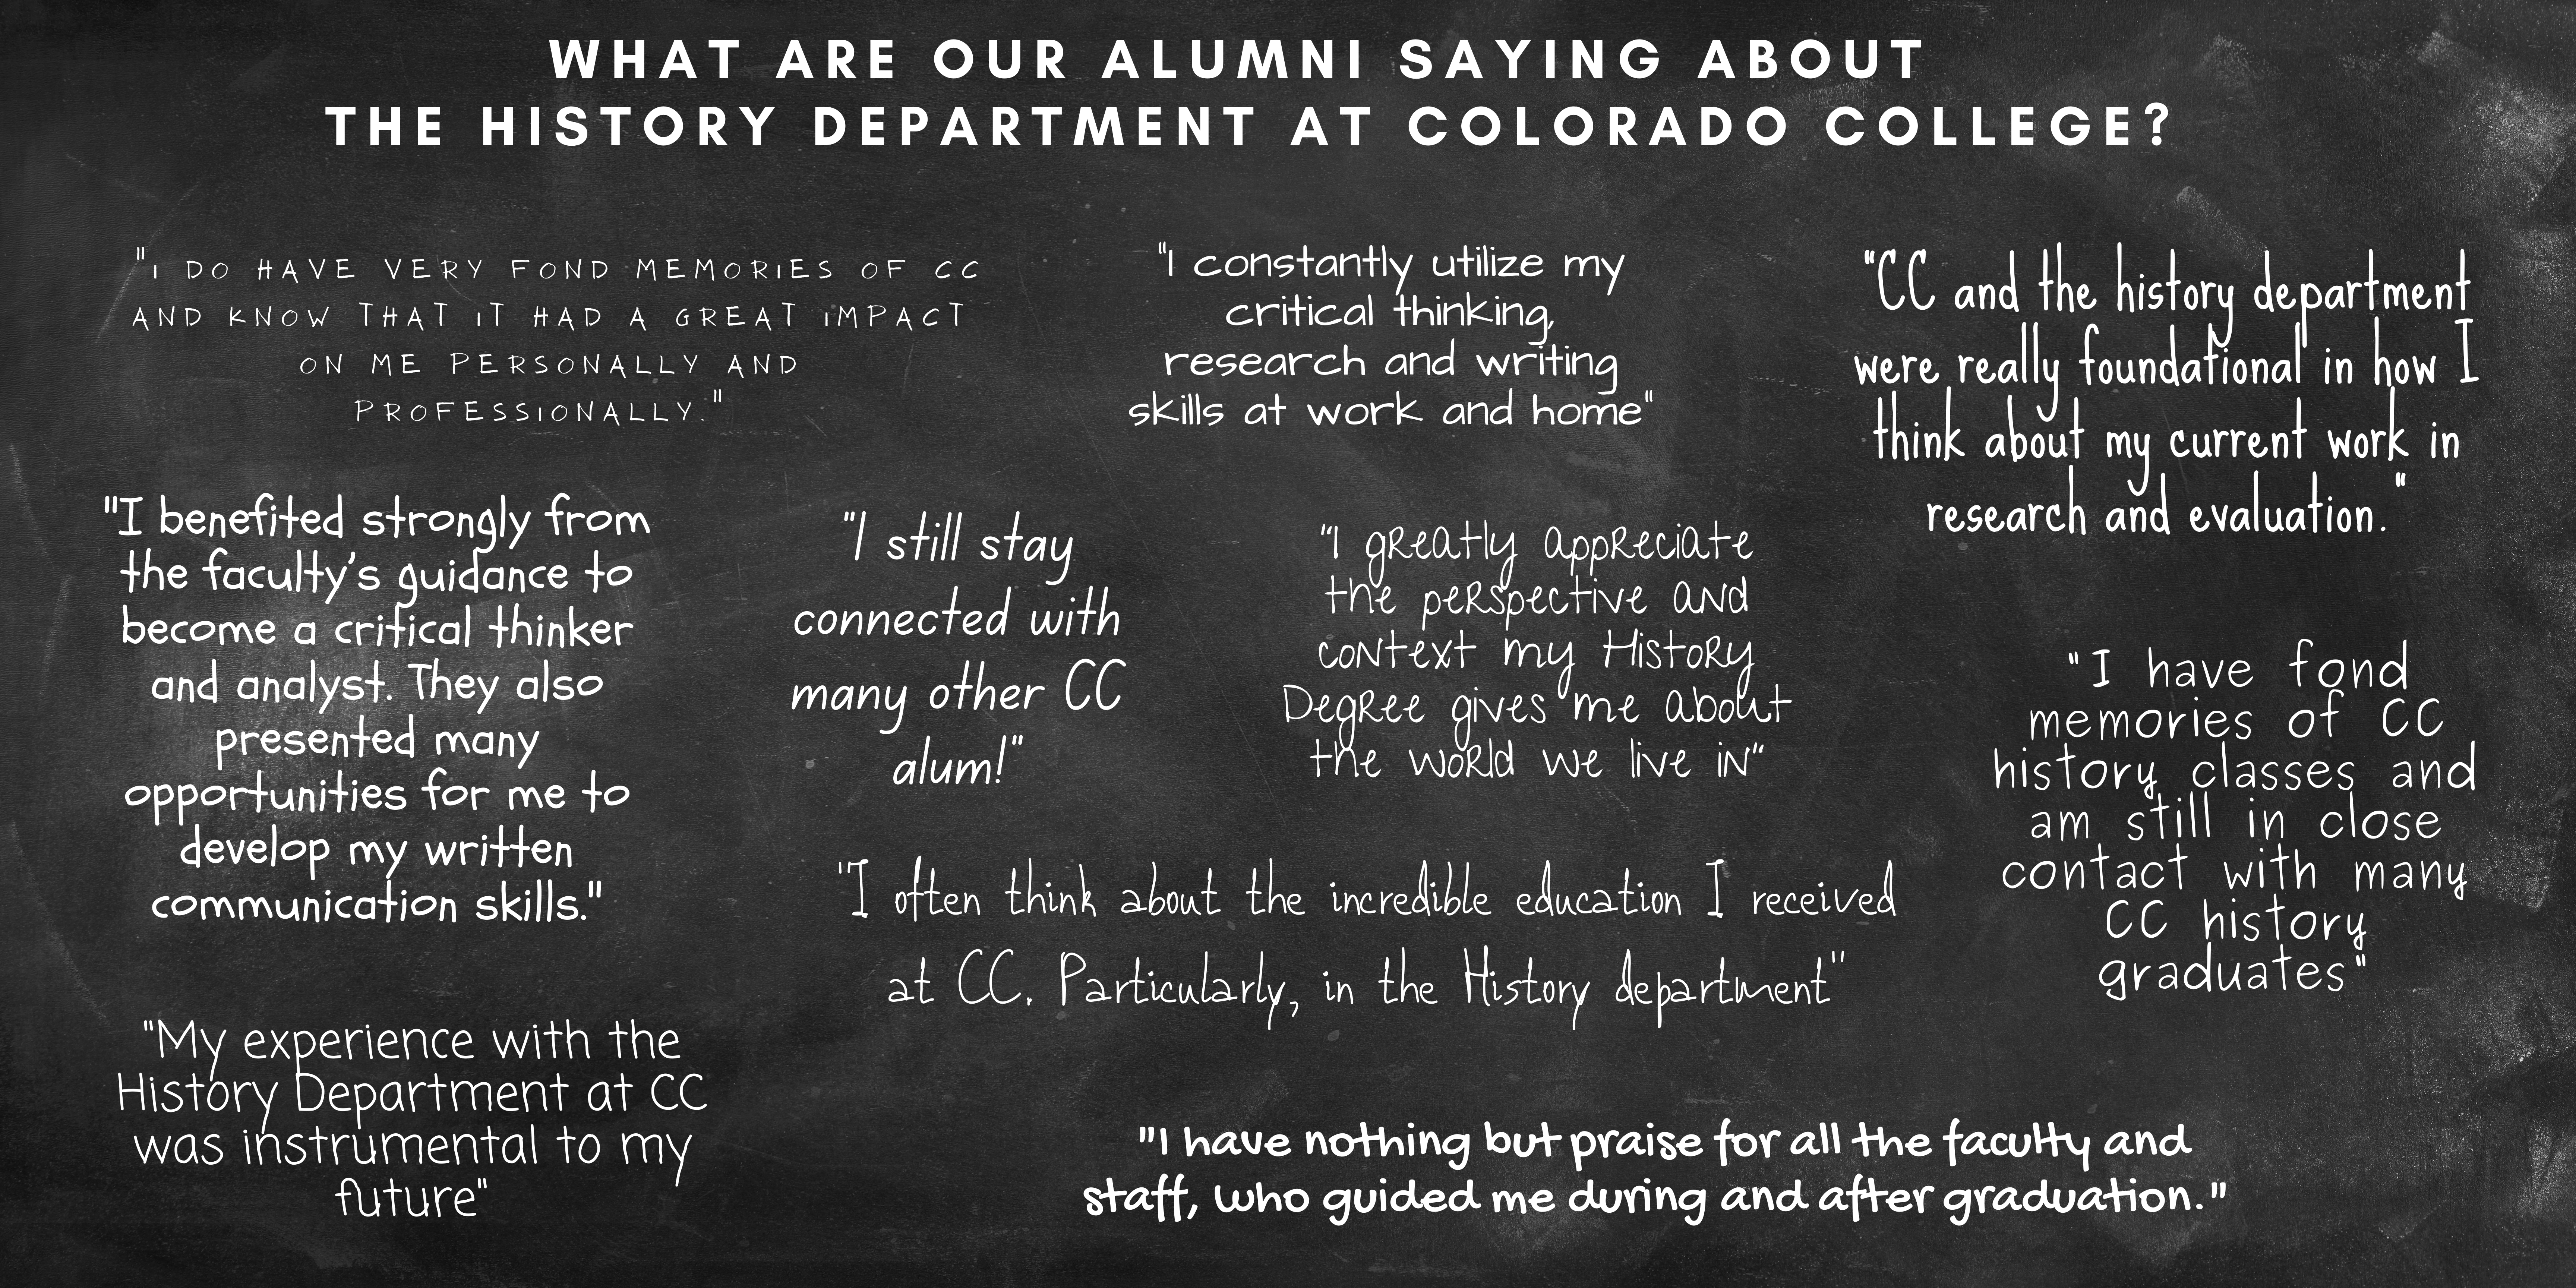 WHAT ARE OUR ALUMNI SAYING ABOUT
THE HISTORY DEPARTMENT AT COLORADO COLLEGE?
"I DO HAVE VERY FOND MEMORIES OF CC
AND KNOW THAT IT HAD A GREAT IMPACT
ON ME PERSONALLY AND
PROFESSIONALLY."
"I constantly utilize my
critical thinking,
research and writing
skills at work and home"
"CC and the history department
were really foundational in how I
think about my current work in
research and evaluation."
"I benefited strongly from
the faculty's guidance to
become a critical thinker
and analyst. They also
presented many
opportunities for me to
develop my written
communication skills."
"I still stay
connected with
many other CC
alum!"
"I greatly appreciate
the perspective and
context my History
Degree gives me about
the world we live in"
"I have fond
memories of CC
history classes and
am still in close
contact with many
CC history
graduates"
"I often think about the incredible education I received
at CC. Particularly, in the History department"
"My experience with the
History Department at CC
was instrumental to my
future"
"I have nothing but praise for all the faculty and
staff, who guided me during and after graduation."